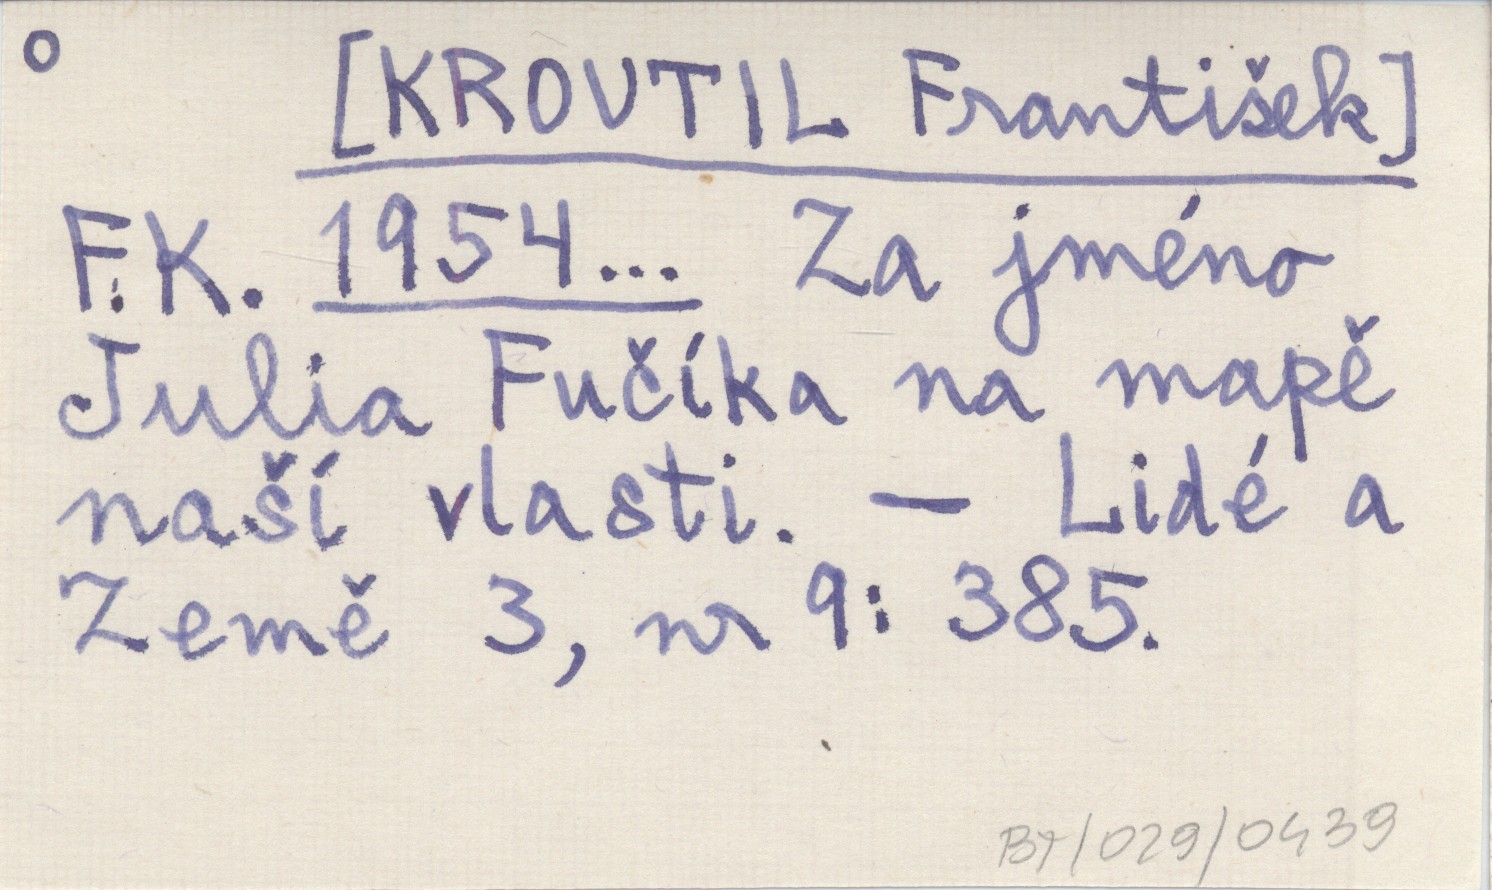 o [KROUTIL František]
F.K. 1954... Za jméno
Julia Fučíka na mapě
naší vlasti. — Lidé a
Země 3, nr 9: 385.
BT/029/0439